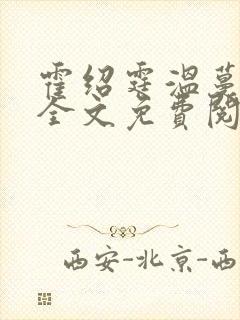 霍绍霆温蔓
全文免费阅
西安-北京-西